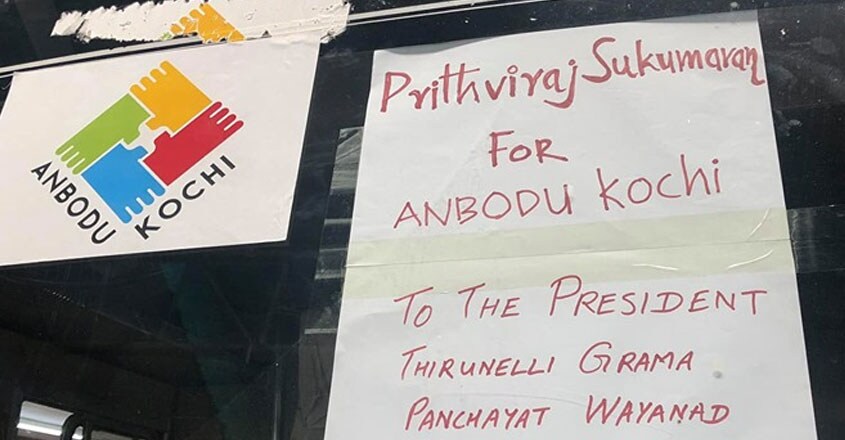 ANBODU KOCHI
Prithviraj Sukumaran
FOR
ANBODU Kochi
TO THE PRESIDENT
THIRUNELLI GRAMA
PANCHAYAT WAYANAD